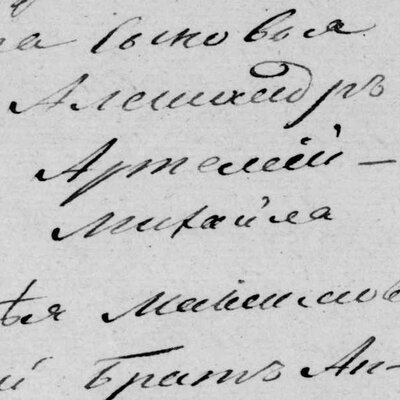 на сыновья
Александръ
Артемій –
Михайла
ѣя Максимов
й братъ Ан-